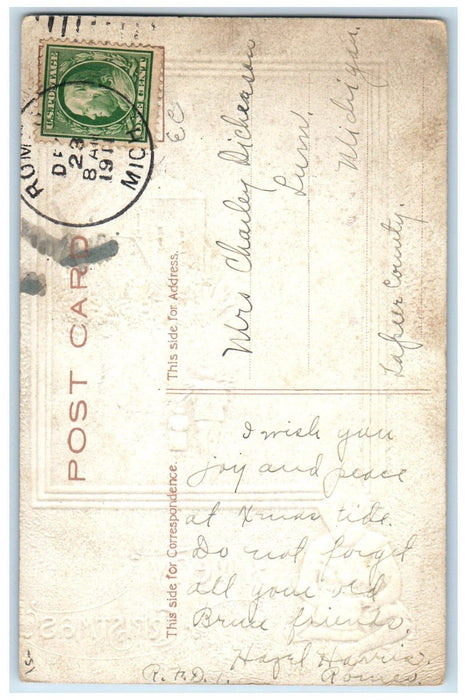 U.S. POSTAGE
1 CENT
ROM
DE
23
8 A
191
MICH
EC
POST CARD
This side for Address.
This side for Correspondence.
Mrs Charley Dickerson
Lum.
Michigan
Lapeer County.
I wish you
joy and peace
at Xmas tide.
Do not forget
all your old
Bruce friends.
Hazel Harris
R.F.D. 1. Romeo
15-